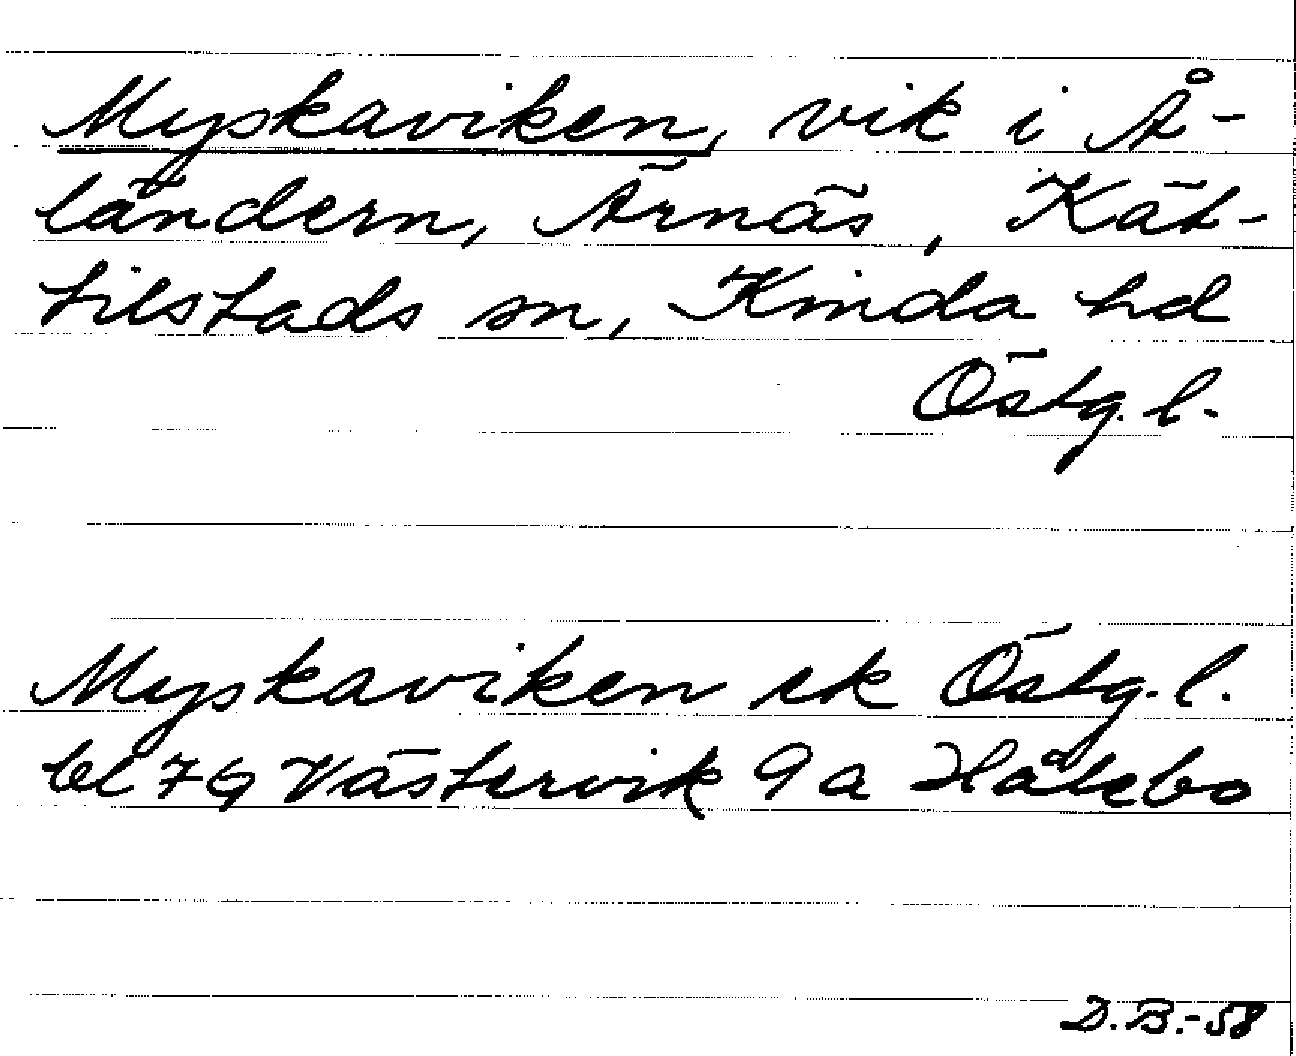 Myskaviken, vik i Å-
ländern, Ärnäs, Kät-
tilstads sn, Kinda hd
Östg. l.
Myskaviken ek Östg. l.
bl 7G Västervik 9a Håtebo
D.B.-58